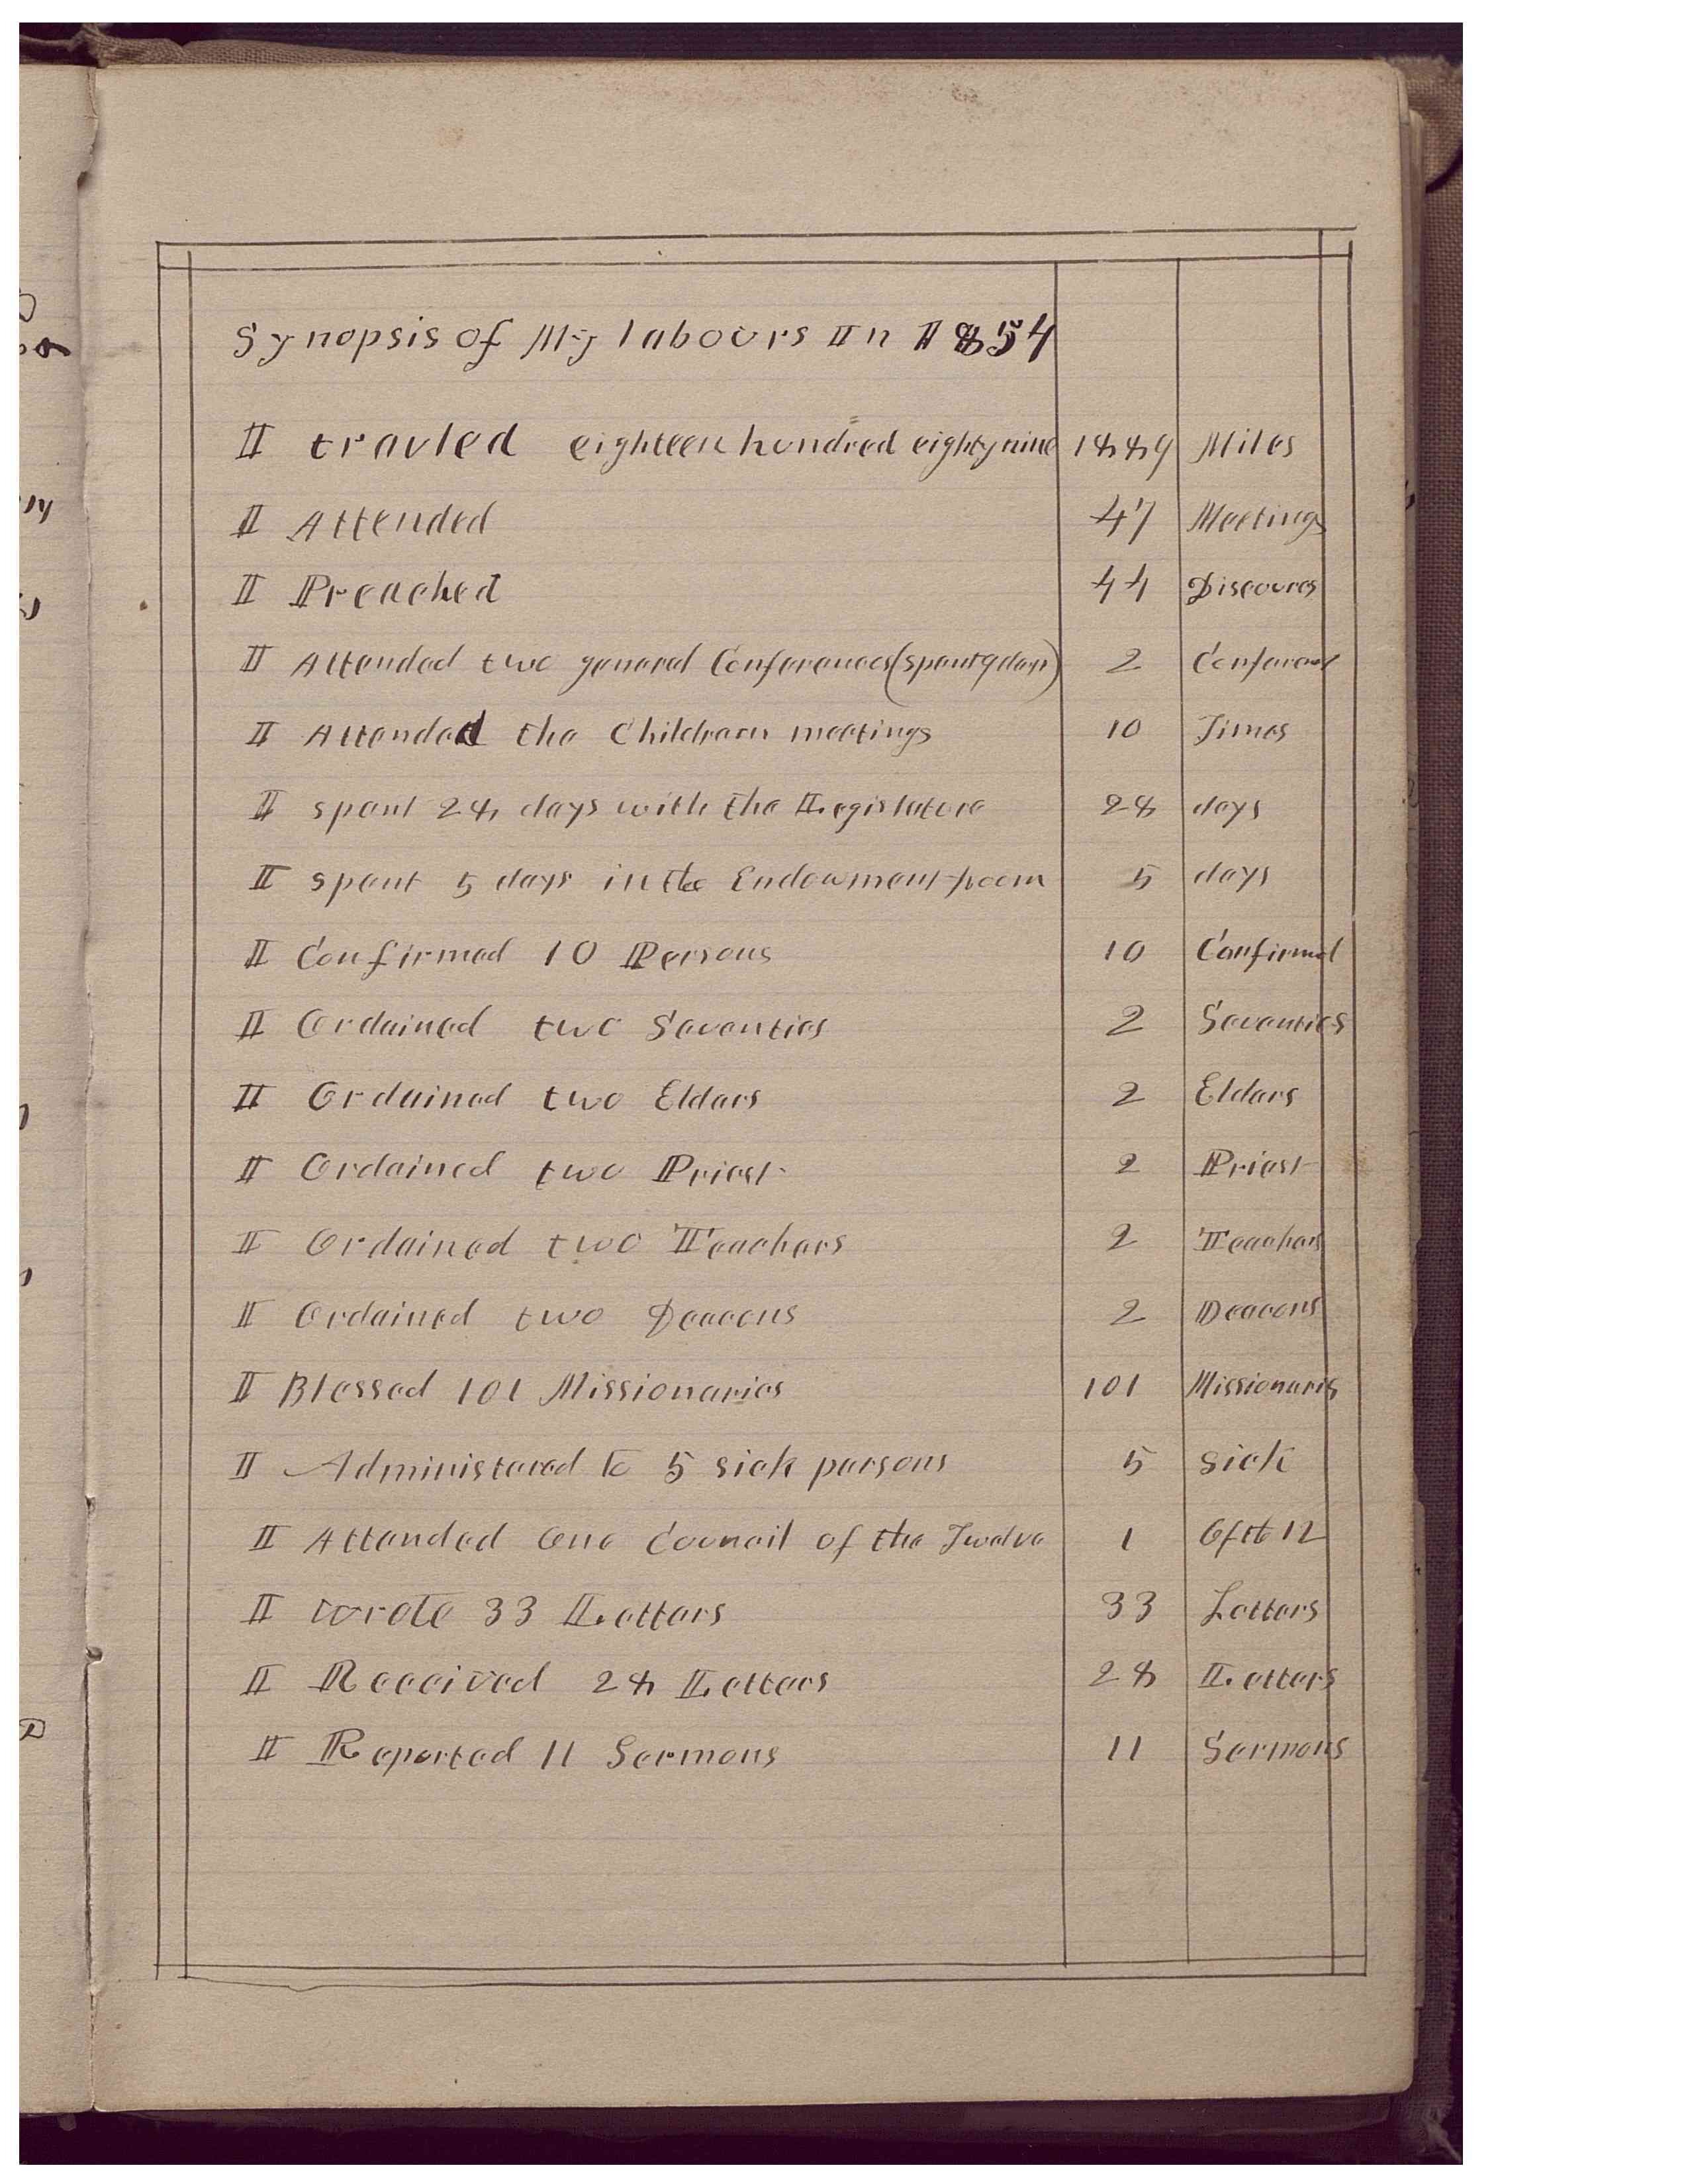 Synopsis of My labours In 1854
I travled eighteen hundred eighty nine 1889 Miles
I Attended 47 Meetings
I Preached 44 Discourses
I Attended two general Conferences (spent 9 days) 2
I Attended the Children meetings 10 Times
I spent 28 days with the Legislature 28 days
I spent 5 days in the Endowment room 5 days
I Confirmed 10 Persons 10 Confirmed
I Ordained two Seventies 2 Seventies
I Ordained two Elders 2 Elders
I Ordained two Priest 2 Priest
I Ordained two Teachers 2 Teachers
I Ordained two Deacons 2 Deacons
I Blessed 101 Missionaries 101 Missionaris
I Administered to 5 sick persons 5 sick
I Attended One Council of the Twelve 1 Of the 12
I wrote 33 Letters 33 Letters
I Received 28 Letters 28 Letters
I Reported 11 Sermons 11 Sermons